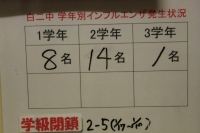 白二中 学年別インフルエンザ発生状況
1学年 2学年 3学年
8名 14名 1名
学級閉鎖 2-5